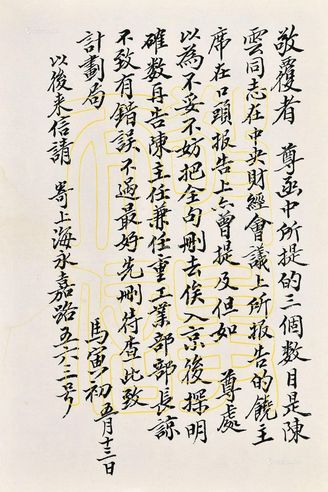 敬覆者 尊函中所提的三個数目是陳
雲同志在中央財經會議上所報告的饒主
席在口頭报告上亦曾提及但如 尊處
以為不妥不妨把全句刪去俟入京後探明
確数再告陳主任兼任重工業部部長諒
不致有錯誤不過最好先刪待查此致
計劃局
馬寅初 五月十三日
以後来信請 寄上海永嘉路五六三号